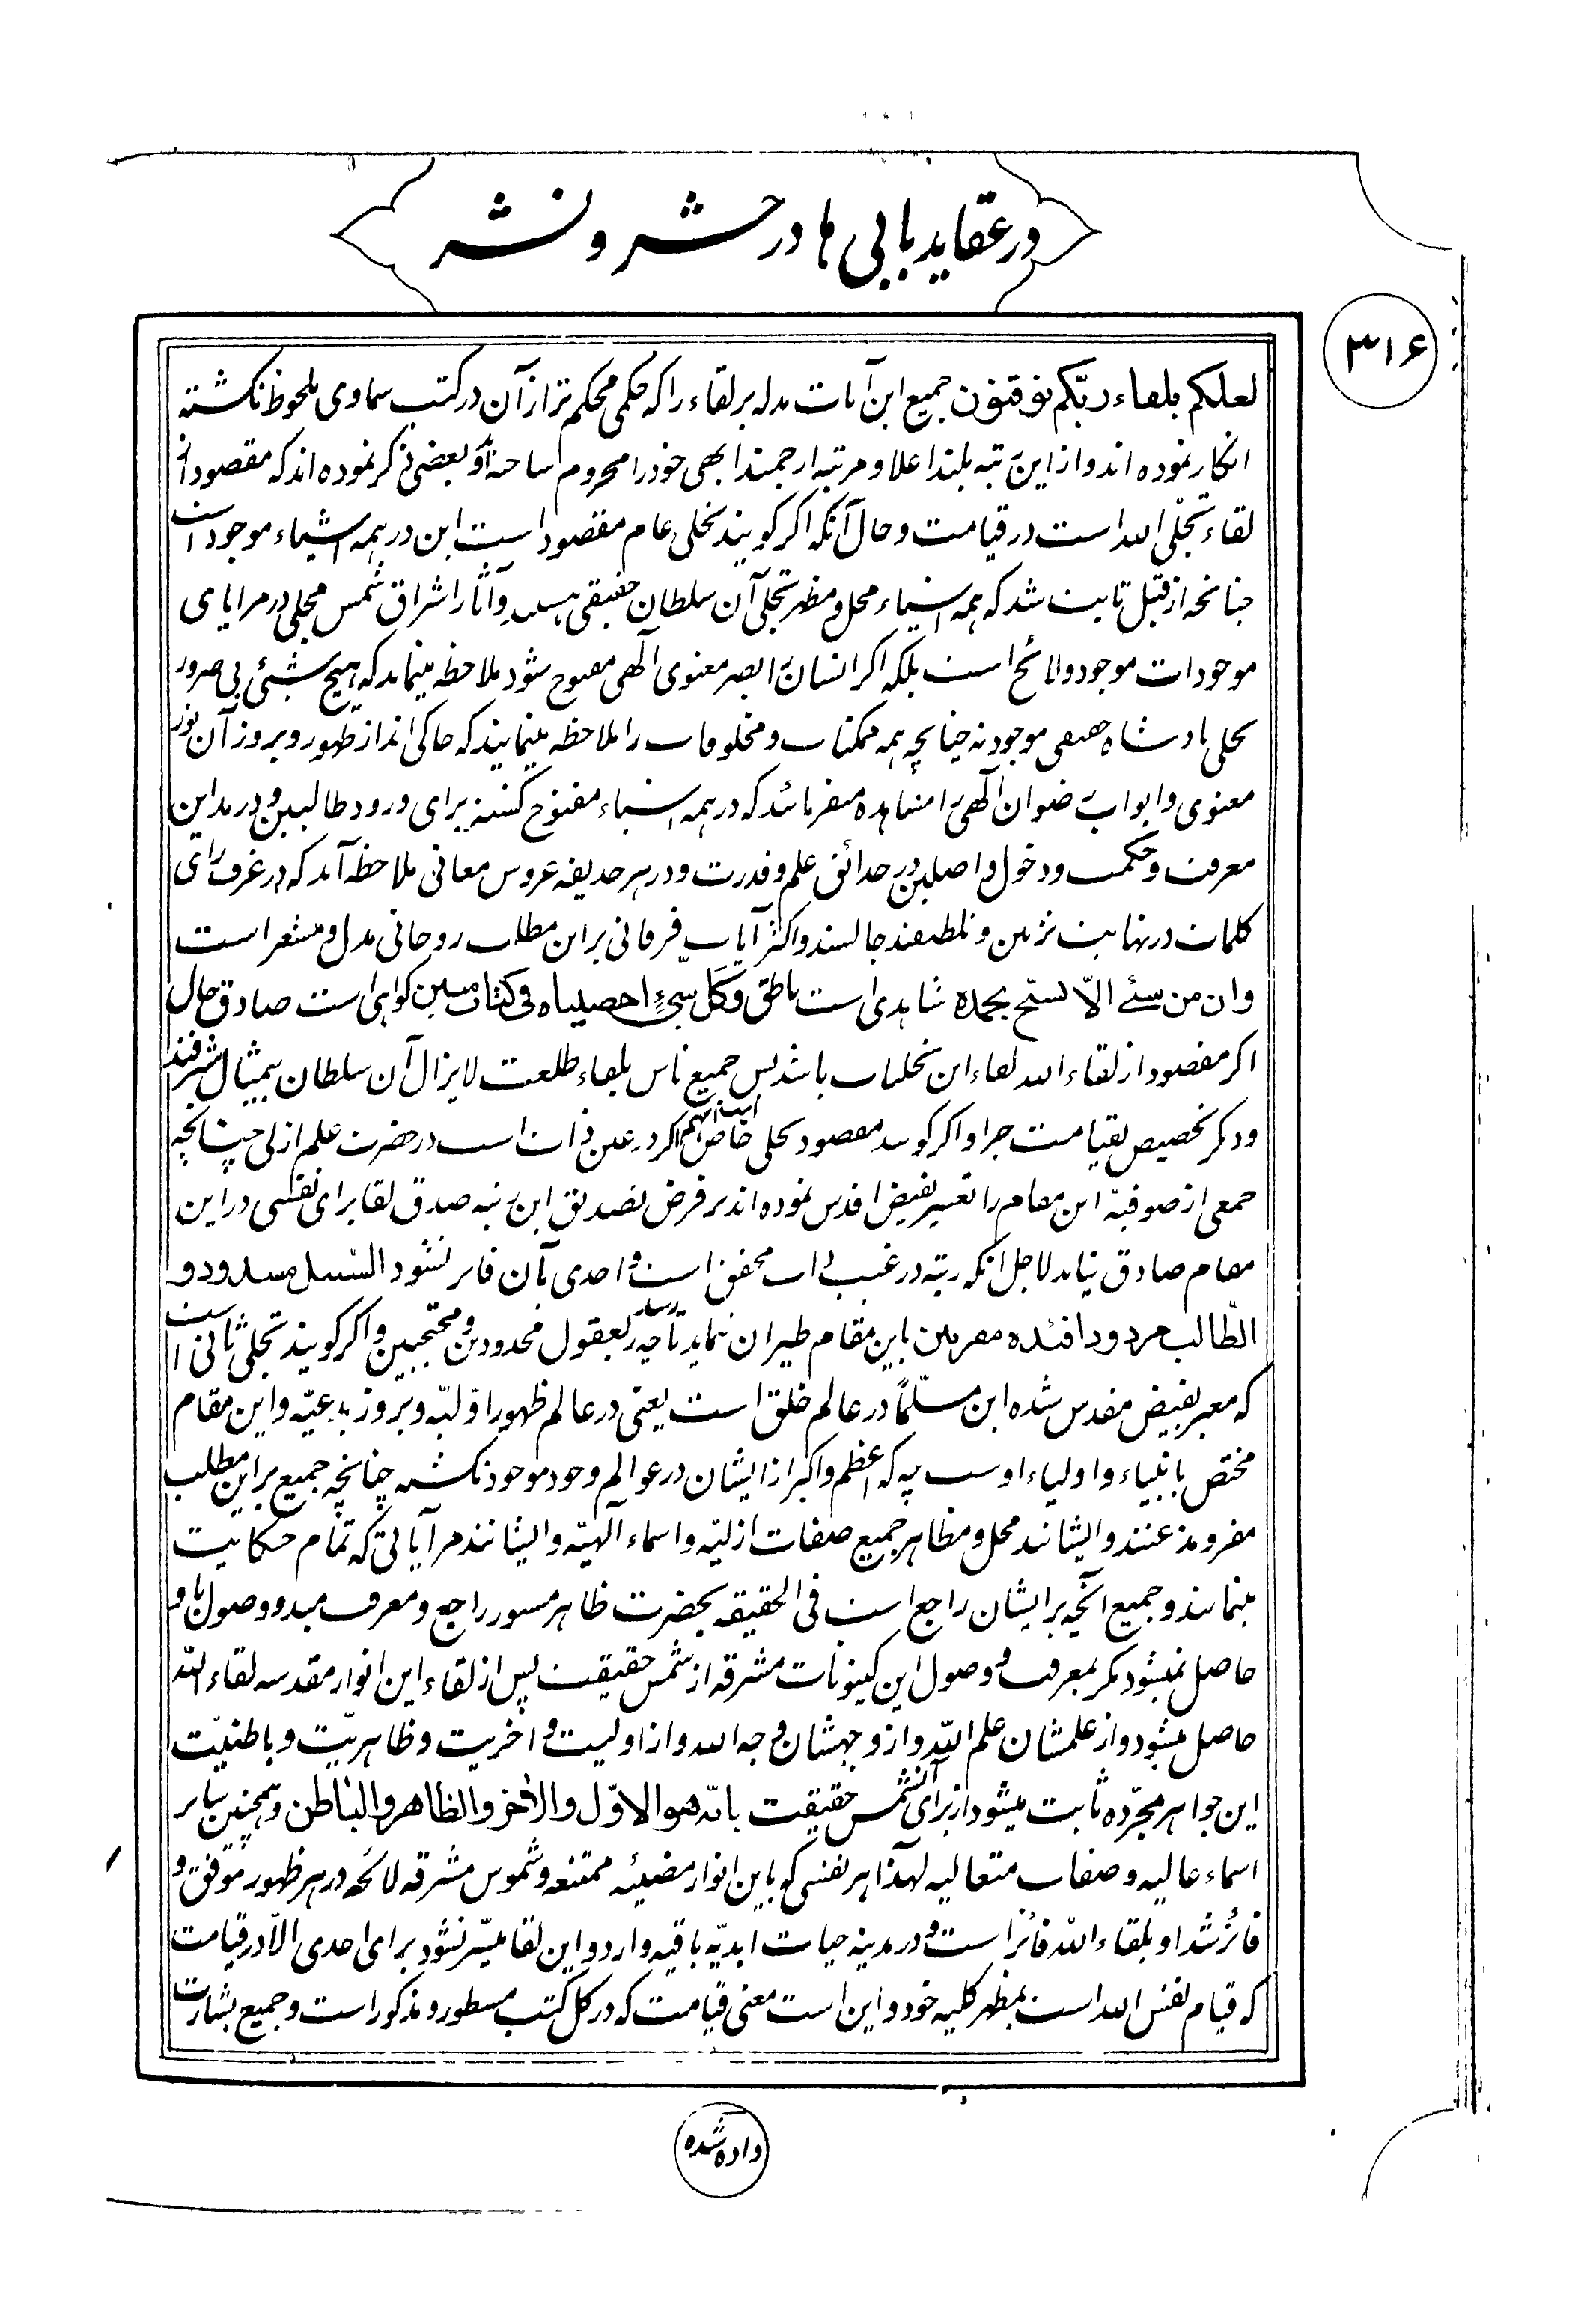 در عقاید بابی ها در حشر و نشر
۳۱۶
لعلکم بلقاء ربّکم توقنون جمیع این آیات مدله بر لقاء را که حکمی محکم تر از آن در کتب سماوی ملحوظ نکشته
انکار نموده اند و از این رتبه بلند اعلا و مرتبه ارجمند ابهی خود را محروم ساخته اند و بعضی ذکر نموده اند که مقصود از
لقاء تجلّی الله است در قیامت و حال آنکه اکر کویند تجلی عام مقصود است این در همه اشیاء موجود است
چنانچه از قبل ثابت شد که همه اشیاء محل و مظهر تجلی آن سلطان حقیقی هستند و آثار اشراق شمس مجلی در مرایای
موجودات موجود و لائح است بلکه اکر انسان را بصر معنوی آلهی مفتوح شود ملاحظه مینماید که هیچ شیئی بی ظهور
تجلی پادشاه حقیقی موجود نه چنانچه همه ممکنات و مخلوقات را ملاحظه مینمایند که حاکی اند از ظهور و بروز آن نور
معنوی و ابواب رضوان آلهی را مشاهده میفرمائید که در همه اشیاء مفتوح کشته برای ورود طالبین در مداین
معرفت و حکمت و دخول واصلین در حدائق علم و قدرت و در هر حدیقه عروس معانی ملاحظه آید که در غرفه های
کلمات در نهایت تزیین و تلطیف جالسند و اکثر آیات فرقانی بر این مطلب روحانی مدل و مشعر است
و ان من شئ الّا یسبّح بحمده شاهدی است ناطق و کلّ شئ احصیناه فی کتاب مبین کواهی است صادق حال
اکر مقصود از لقاء الله لقاء این تجلیات باشد پس جمیع ناس بلقاء طلعت لایزال آن سلطان بیمثال مشرفند
و دیکر تخصیص بقیامت چرا و اکر کویند مقصود تجلی خاص است آنهم اکر در عین ذات است در حضرت علم ازلی چنانچه
جمعی از صوفیّه این مقام را تعبیر بفیض اقدس نموده اند بر فرض تصدیق این رتبه صدق لقا برای نفسی در این
مقام صادق نیاید لاجل آنکه رتبه در غیب ذات محقق است و احدی بآن فائز نشود السّبیل مسدود و
الطّالب مردود افئده مقربین باین مقام طیران ننماید تا چه رسد بعقول محدودین و محتجبین و اکر کویند تجلی ثانی است
که معبر بفیض مقدس شده این مسلّماً در عالم خلق است یعنی در عالم ظهور اوّلیّه و بروز بدعیّه و این مقام
مختص بانبیاء و اولیاء اوست چه که اعظم و اکبر از ایشان در عوالم وجود موجود نکشته چنانچه جمیع بر این مطلب
مقر و مذعنند و ایشانند محل و مظاهر جمیع صفات ازلیّه و اسماء آلهیّه و ایشانند مرآیائی که تمام حکایت
مینمایند و جمیع آنچه بر ایشان راجع است فی الحقیقه بحضرت ظاهر مستور راجع و معرفت مبدء و وصول باو
حاصل نمیشود مکر بمعرفت و وصول این کینونات مشرقه از شمس حقیقت پس از لقاء این انوار مقدسه لقاء الله
حاصل میشود و از علمشان علم الله و از وجهشان وجه الله و از اولیت و آخریت و ظاهریّت و باطنیّت
این جواهر مجرّده ثابت میشود از برای آن شمس حقیقت بانّه هو الاوّل والاخر والظاهر والباطن و همچنین سایر
اسماء عالیه و صفات متعالیه لهذا هر نفسی که باین انوار مضیئه ممتنعه و شموس مشرقه لائحه در هر ظهور موفق و
فائز شد او بلقاء الله فائز است و در مدینه حیات ابدیّه باقیه وارد و این لقا میسّر نشود برای احدی الّا در قیامت
که قیام نفس الله است بمظهر کلیه خود و این است معنی قیامت که در کل کتب مسطور و مذکور است و جمیع بشارت
داده شده